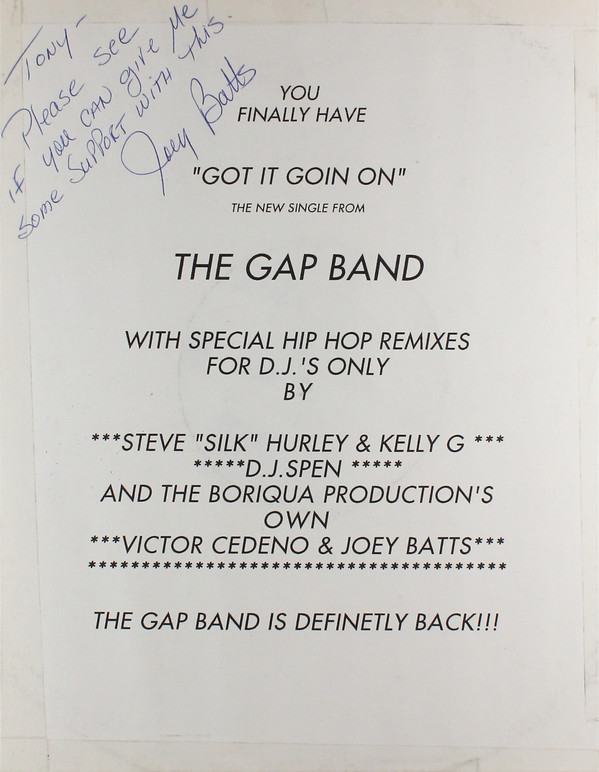 Tony-
Please see
if you can give me
some support with this.
Joey Batts
YOU
FINALLY HAVE
"GOT IT GOIN ON"
THE NEW SINGLE FROM
THE GAP BAND
WITH SPECIAL HIP HOP REMIXES
FOR D.J.'S ONLY
BY
***STEVE "SILK" HURLEY & KELLY G ***
*****D.J.SPEN *****
AND THE BORIQUA PRODUCTION'S
OWN
***VICTOR CEDENO & JOEY BATTS***
***************************************
THE GAP BAND IS DEFINETLY BACK!!!